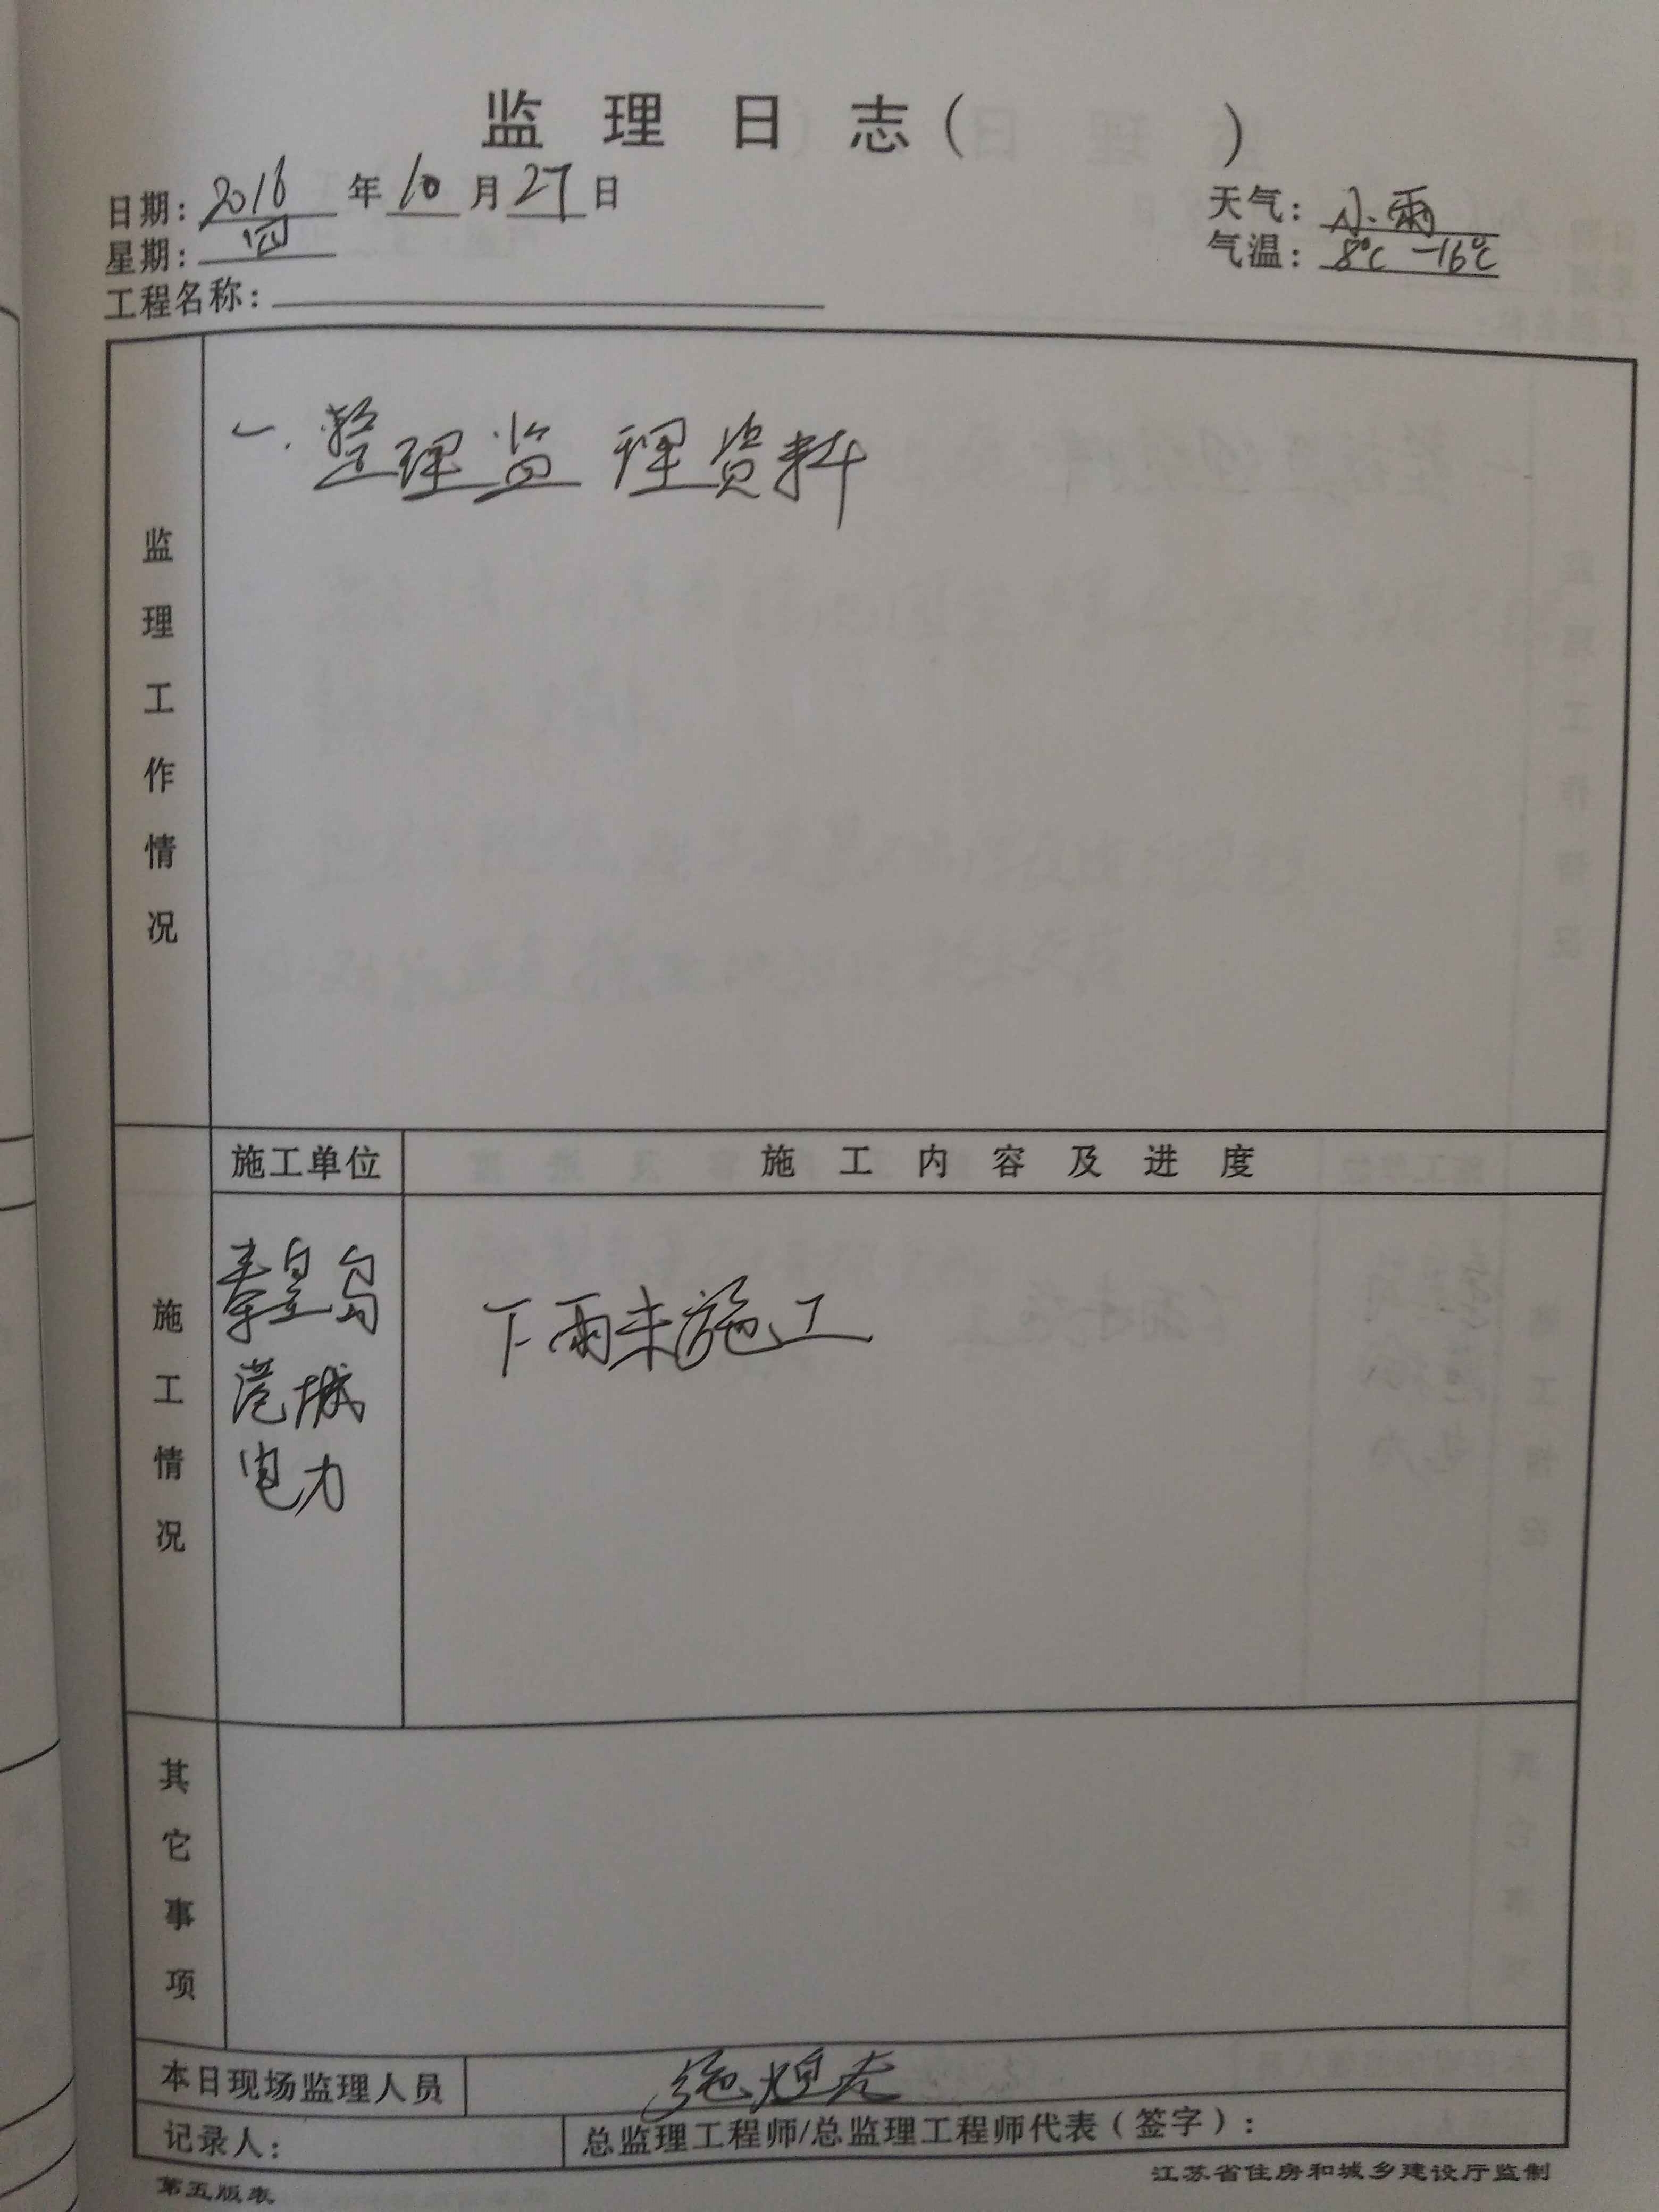 监理日志(      )
日期: 2016 年 10 月 27 日
天气: 小雨
星期: 四
气温: 8℃ -16℃
工程名称:
监理工作情况
一. 整理监理资料
施工单位
施工内容及进度
施工情况
秦皇岛
港城
电力
下雨未施工
其它事项
本日现场监理人员
施
记录人:
总监理工程师/总监理工程师代表(签字):
第五版表
江苏省住房和城乡建设厅监制